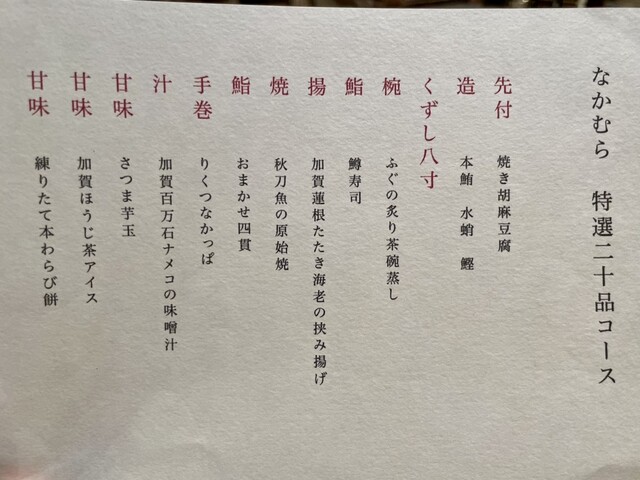 なかむら 特選二十品コース
先付 焼き胡麻豆腐
造 本鮪 水蛸 鰹
くずし八寸
椀 ふぐの炙り茶碗蒸し
鮨 鱒寿司
揚 加賀蓮根たたき海老の挟み揚げ
焼 秋刀魚の原始焼
鮨 おまかせ四貫
手巻 りくつなかっぱ
汁 加賀百万石ナメコの味噌汁
甘味 さつま芋玉
甘味 加賀ほうじ茶アイス
甘味 練りたて本わらび餅